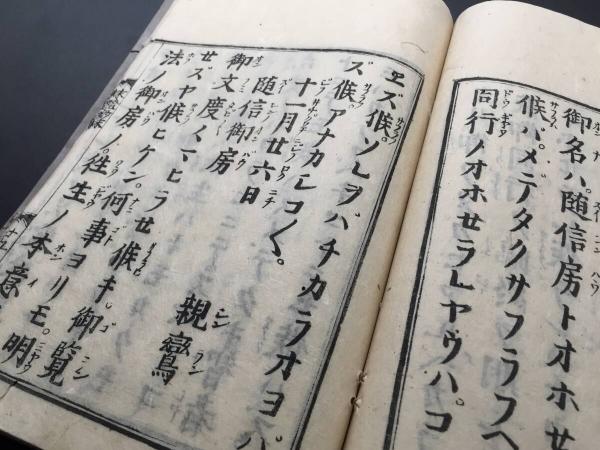 御名ハ随信房トオホせ
候ハ。メデタクサフラフヘ
同行ノオホせラレヤウハ。コ
ヱズ候。ソレヲバチカラオヨバ
ズ候。アナカシコ〱。
十一月廿六日 親鸞
随信御房
御文度〱マヒラせ候キ御覧
せズヤ候ヒケン。何事ヨリモ。明
法ノ御房ノ。往生ノ本意